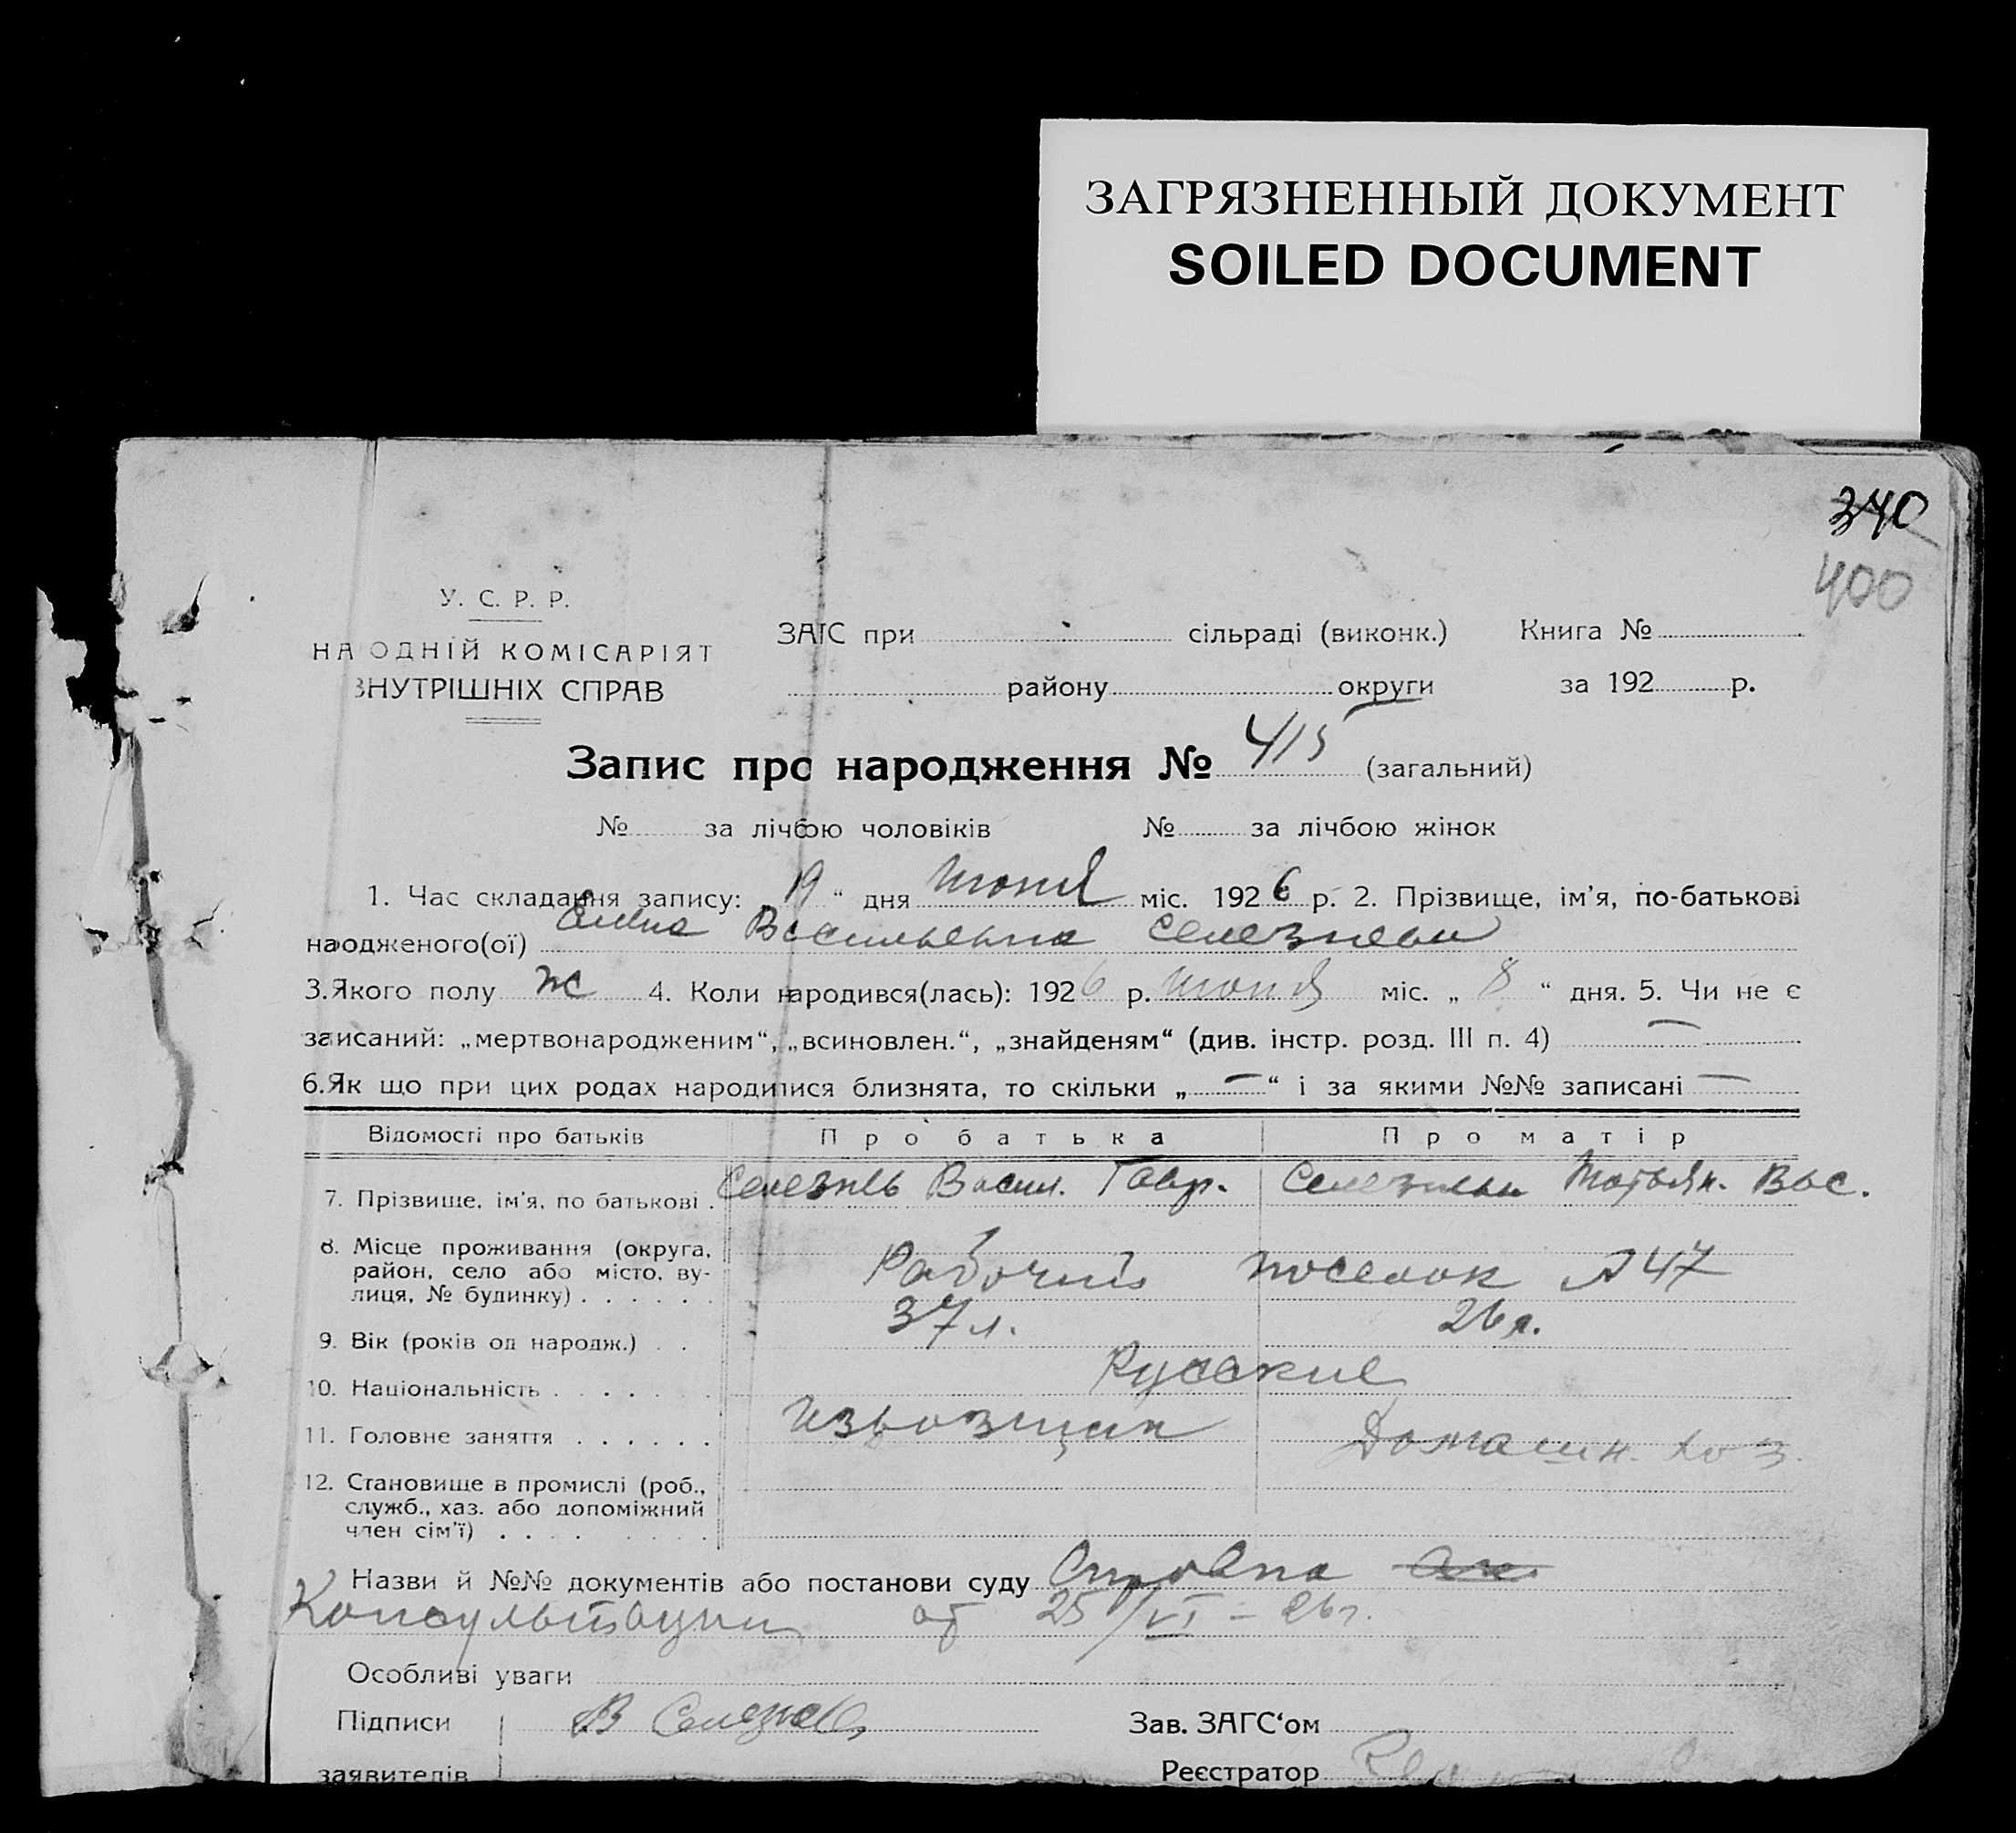 ЗАГРЯЗНЕННЫЙ ДОКУМЕНТ
SOILED DOCUMENT
340
400
У. С. Р. Р.
НА ОДНІЙ КОМІСАРІЯТ
ВНУТРІШНІХ СПРАВ
ЗАГС при сільраді (виконк.) Книга №
району округи за 192 р.
Запис про народження № 415 (загальний)
№ за лічбою чоловіків № за лічбою жінок
1. Час складання запису: „19“ дня Июня міс. 1926 р. 2. Прізвище, ім'я, по-батькові
наодженого(ої) Васильевна Селезнева
3. Якого полу ж 4. Коли народився(лась): 1926 р. Июня міс. „8“ дня. 5. Чи не є
записаний: „мертвонародженим“, „всиновлен.“, „знайденям“ (див. інстр. розд. III п. 4) —
6. Як що при цих родах народилися близнята, то скільки „—“ і за якими №№ записані —
Відомості про батьків Про батька Про матір
7. Прізвище, ім'я, по батькові . Селезнев Васил. Гавр. Селезнева Татьян. Вас.
8. Місце проживання (округа,
район, село або місто, ву-
лиця, № будинку) . . . . . . Рабочий поселок № 47
9. Вік (років од народж.) . . 37 л. 26 л.
10. Національність . . . . . . Русские
11. Головне заняття . . . . . . Извозщик Домашн. хоз.
12. Становище в промислі (роб.,
служб., хаз. або допоміжний
член сім'ї) . . . . . . . .
Назви й №№ документів або постанови суду Справка
Консультации от 25/VI – 26 г.
Особливі уваги
Підписи В Селезнев Зав. ЗАГС‘ом
заявителів Реєстратор